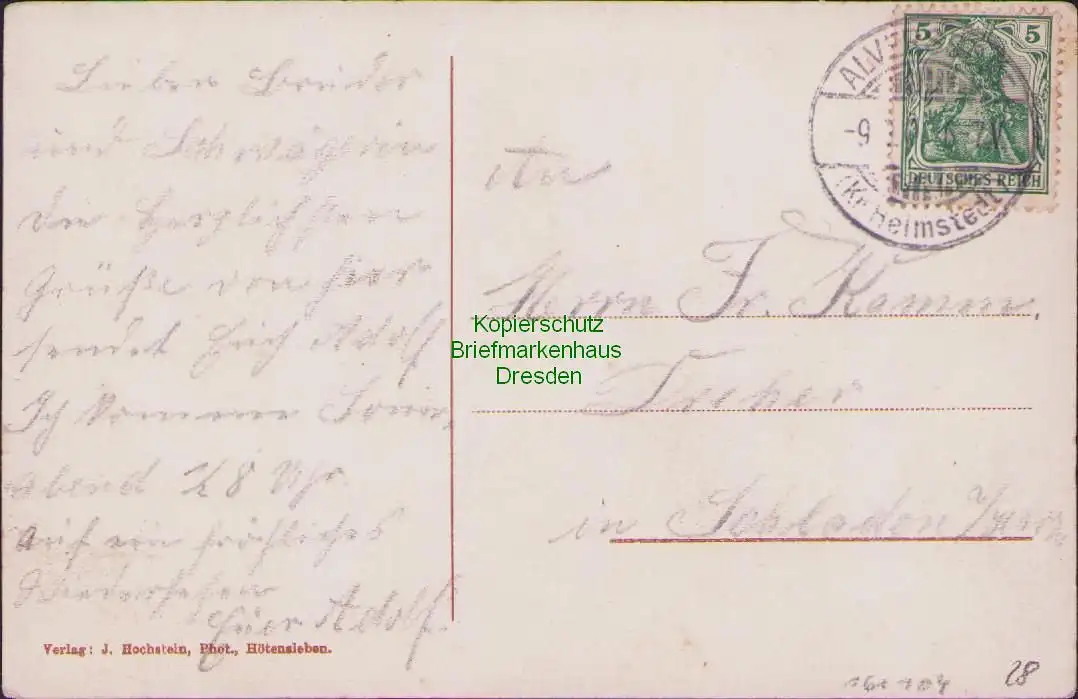 Lieber Bruder
und Schwägerin
die herzlichsten
Grüße von hier
sendet Euch Adolf
Ich komme Sonn-
abend 1/2 8 Uhr
auf ein fröhliches
Wiedersehen
Euer Adolf.
Verlag: J. Hochstein, Phot., Hötensleben.
5 5
DEUTSCHES REICH
ALV
-9
(Kr. Helmstedt)
An
Herrn Fr. Kamm,
Dreher
in Schladen Harz
Kopierschutz
Briefmarkenhaus
Dresden
28